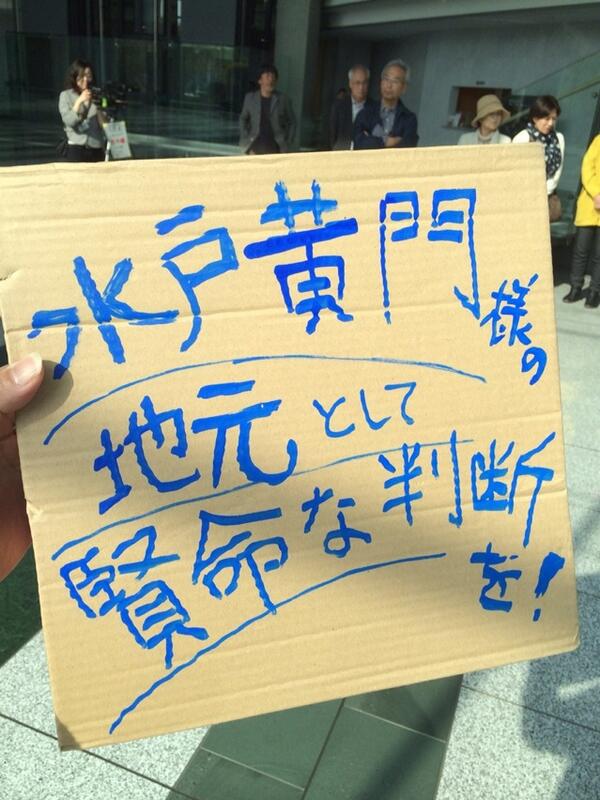 水戸黄門様の
地元として
賢命な判断を!